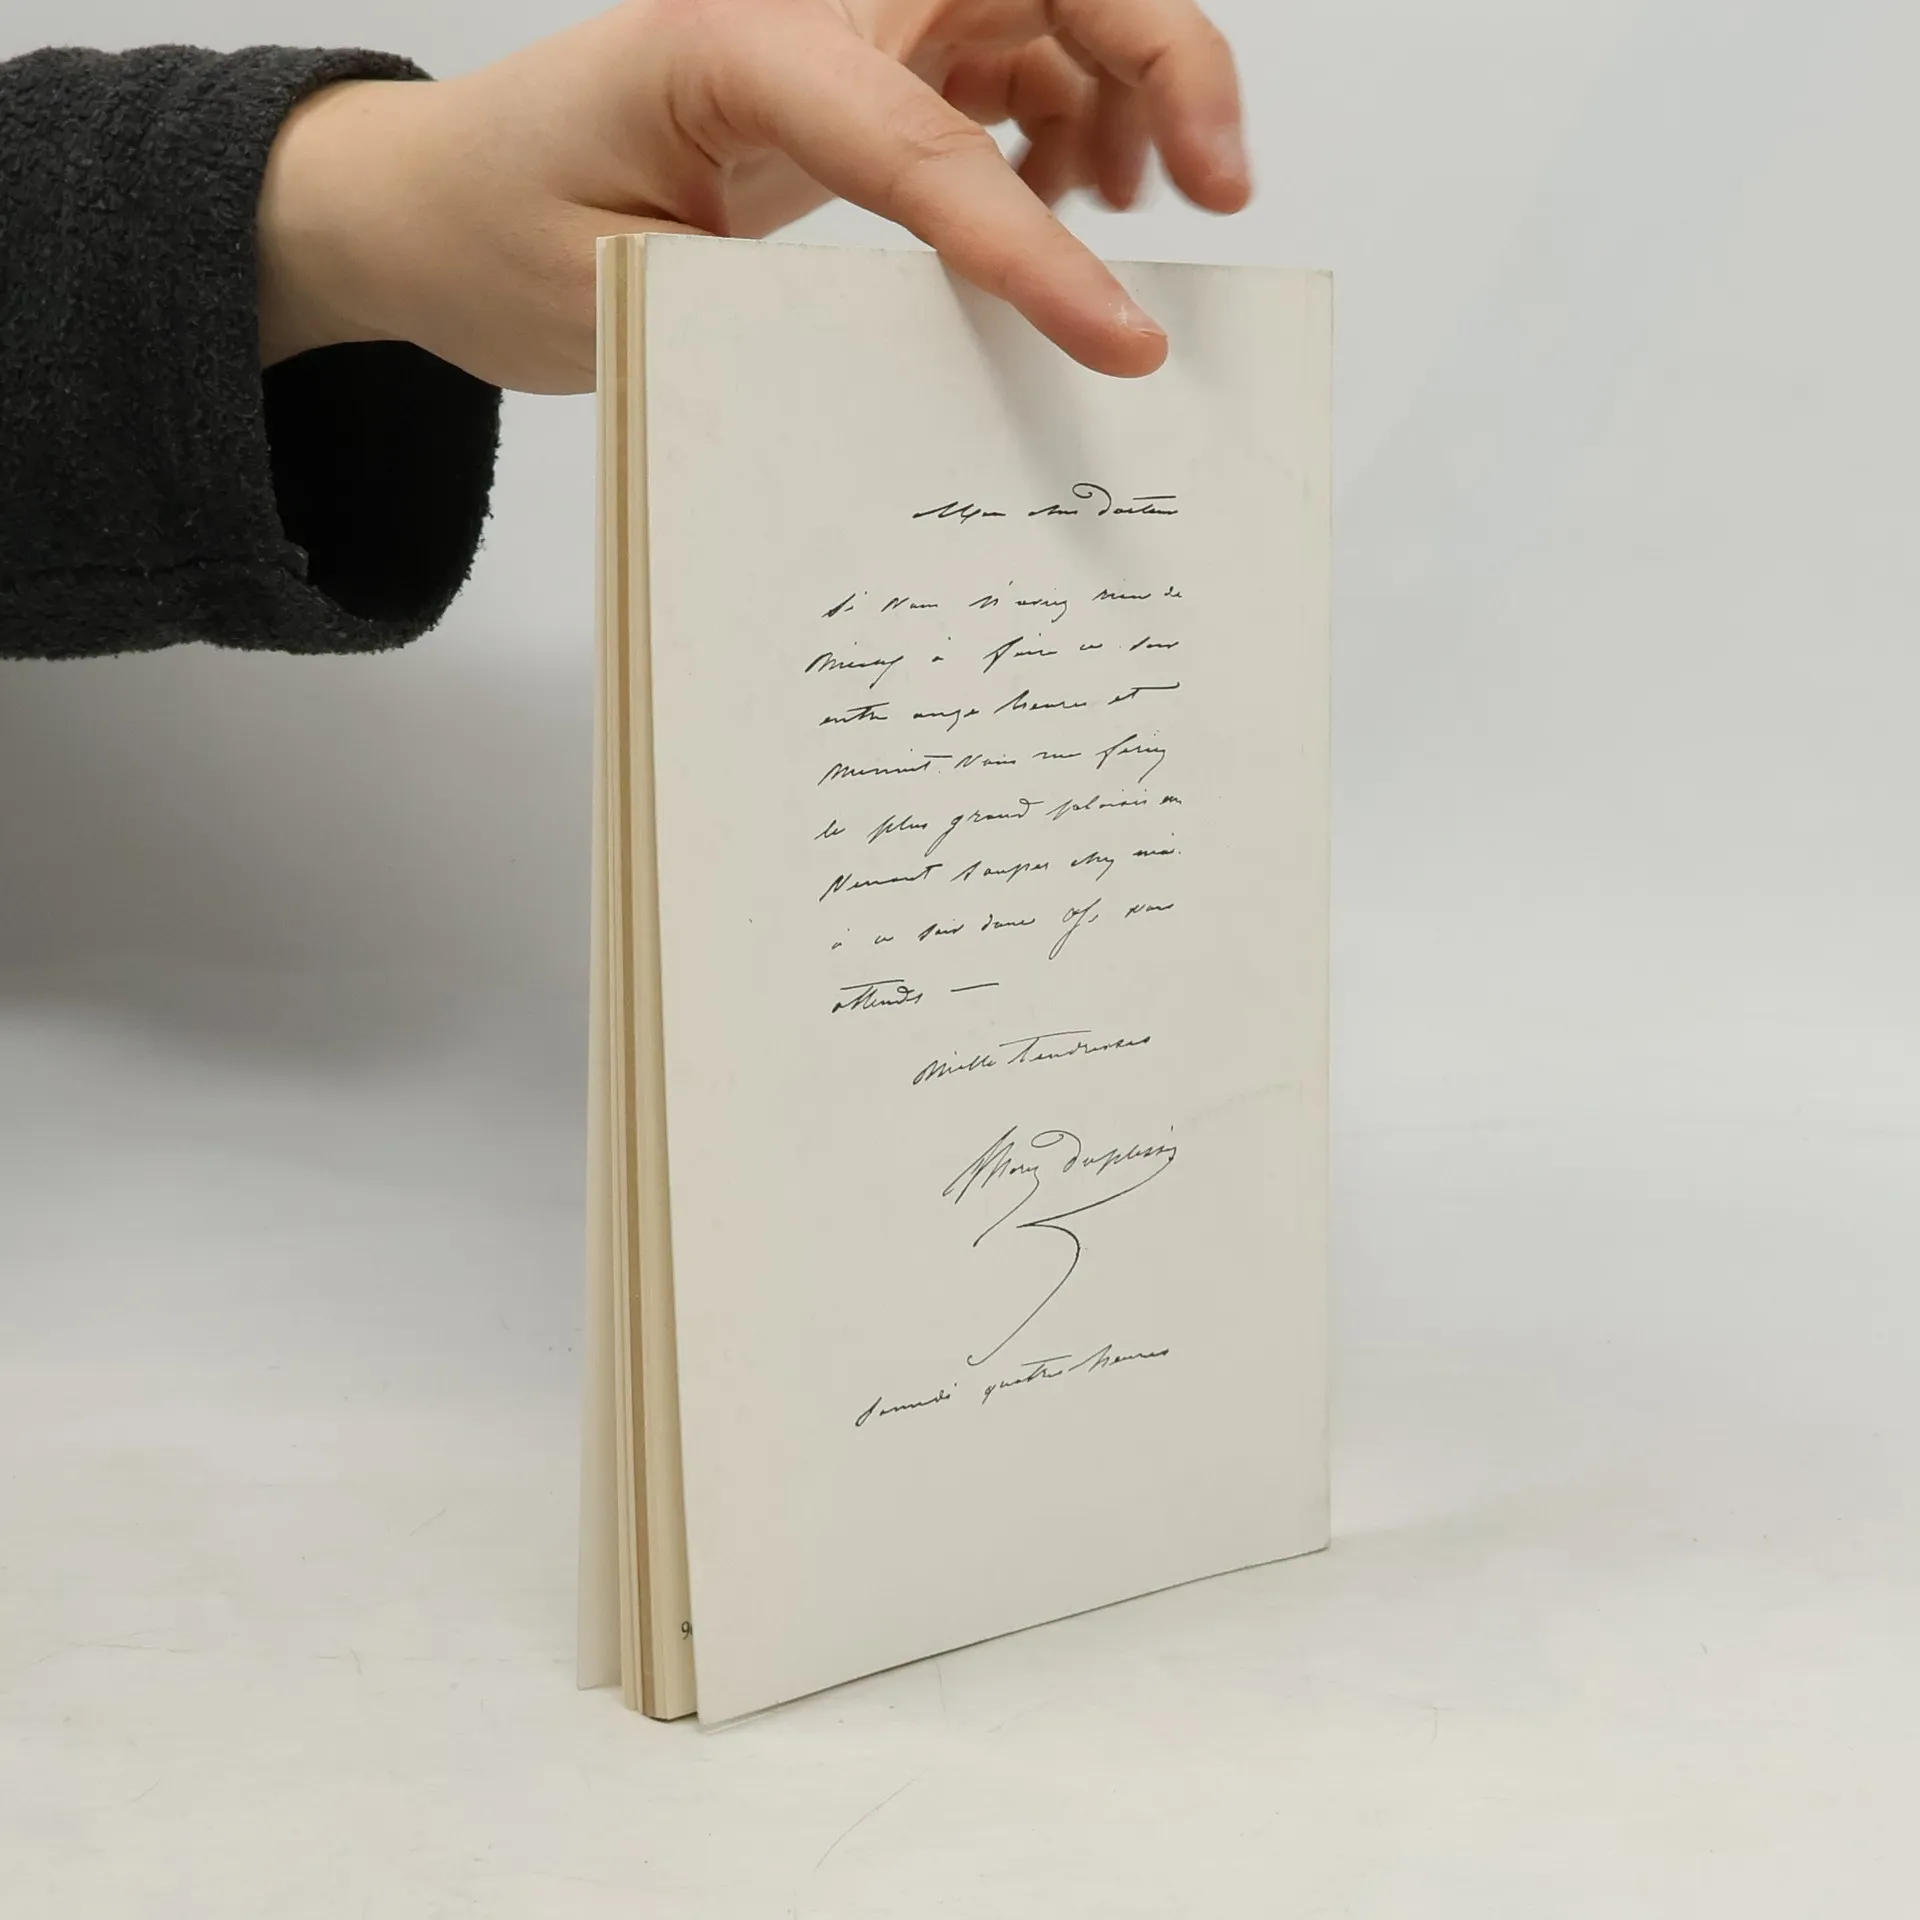 Mon cher Docteur
Si vous n'aviez rien de
Mieux à faire ce soir
entre onze heures et
Minuit. Vous me feriez
le plus grand plaisir en
Venant souper chez moi.
à ce soir donc vous
attends —
Mille tendresses
Mary Duplessis
Samedi quatre heures
9